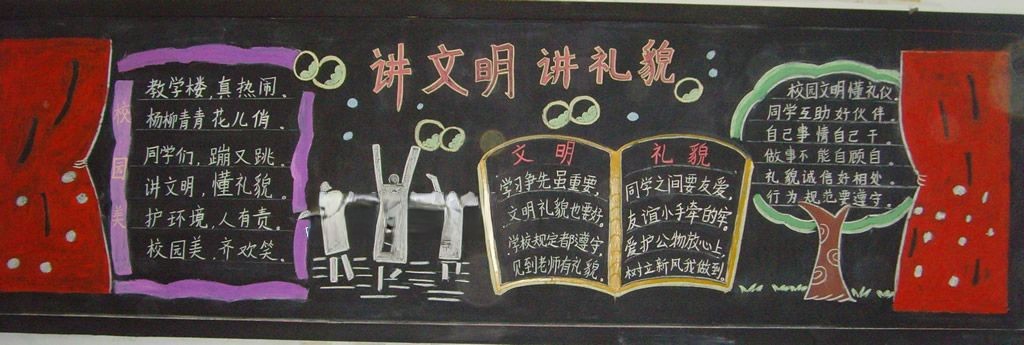 讲文明 讲礼貌
校园美
教学楼,真热闹。
杨柳青青花儿俏。
同学们,蹦又跳。
讲文明,懂礼貌。
护环境,人有责。
校园美,齐欢笑。
文明
学习争先虽重要。
文明礼貌也要好。
学校规定都遵守
见到老师有礼貌。
礼貌
同学之间要友爱。
友谊小手牵的牢。
爱护公物放心上
树立新风我做到。
校园文明懂礼仪。
同学互助好伙伴。
自己事情自己干。
做事不能自顾自。
礼貌诚信好相处。
行为规范要遵守。